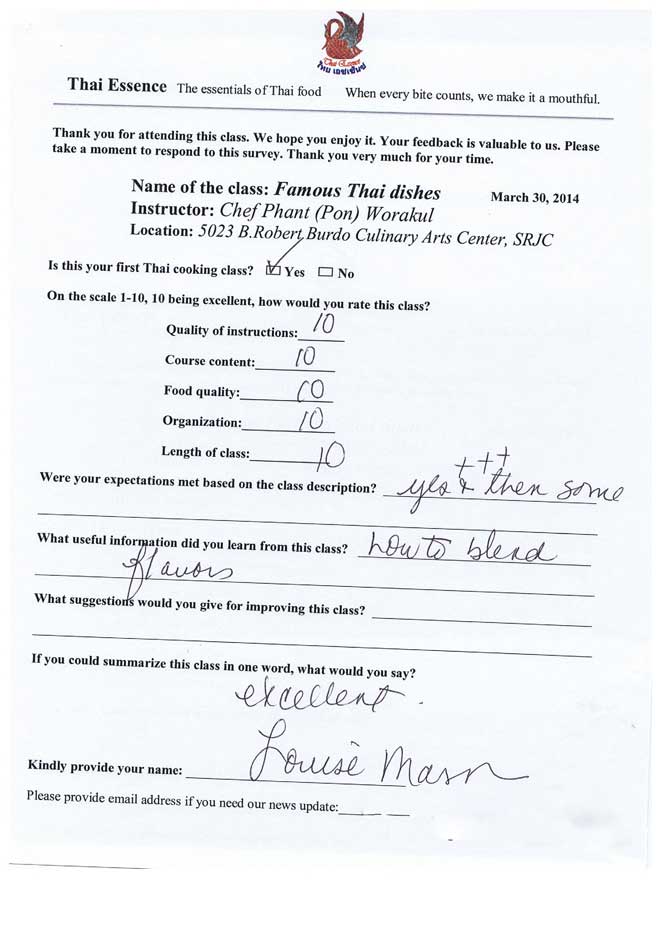 Thai Essence
ไทย เอซเซ้นซ
Thai Essence The essentials of Thai food When every bite counts, we make it a mouthful.
Thank you for attending this class. We hope you enjoy it. Your feedback is valuable to us. Please
take a moment to respond to this survey. Thank you very much for your time.
Name of the class: Famous Thai dishes March 30, 2014
Instructor: Chef Phant (Pon) Worakul
Location: 5023 B.Robert Burdo Culinary Arts Center, SRJC
Is this your first Thai cooking class? ☑ Yes ☐ No
On the scale 1-10, 10 being excellent, how would you rate this class?
Quality of instructions: 10
Course content: 10
Food quality: 10
Organization: 10
Length of class: 10
+++
Were your expectations met based on the class description? yes & then some
What useful information did you learn from this class? how to blend
flavors
What suggestions would you give for improving this class?
If you could summarize this class in one word, what would you say?
excellent.
Kindly provide your name: Louise Mason
Please provide email address if you need our news update: